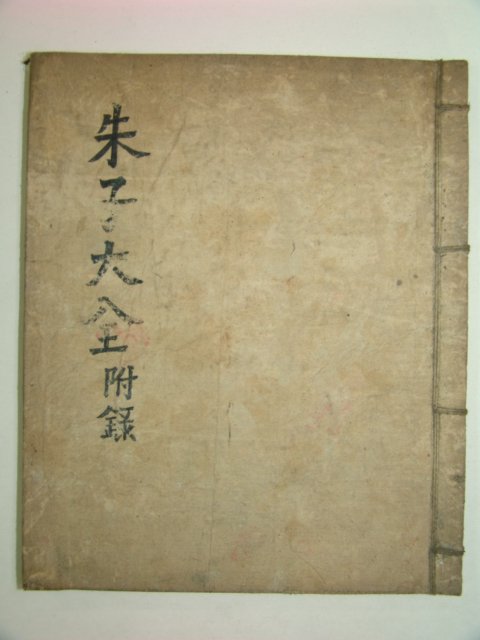 朱子大全附録